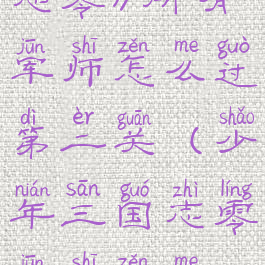 jūn shī zěn me guò
军师怎么过
dì èr guān shǎo
第二关（少
nián sān guó zhì líng
年三国志零
jūn shī zěn me